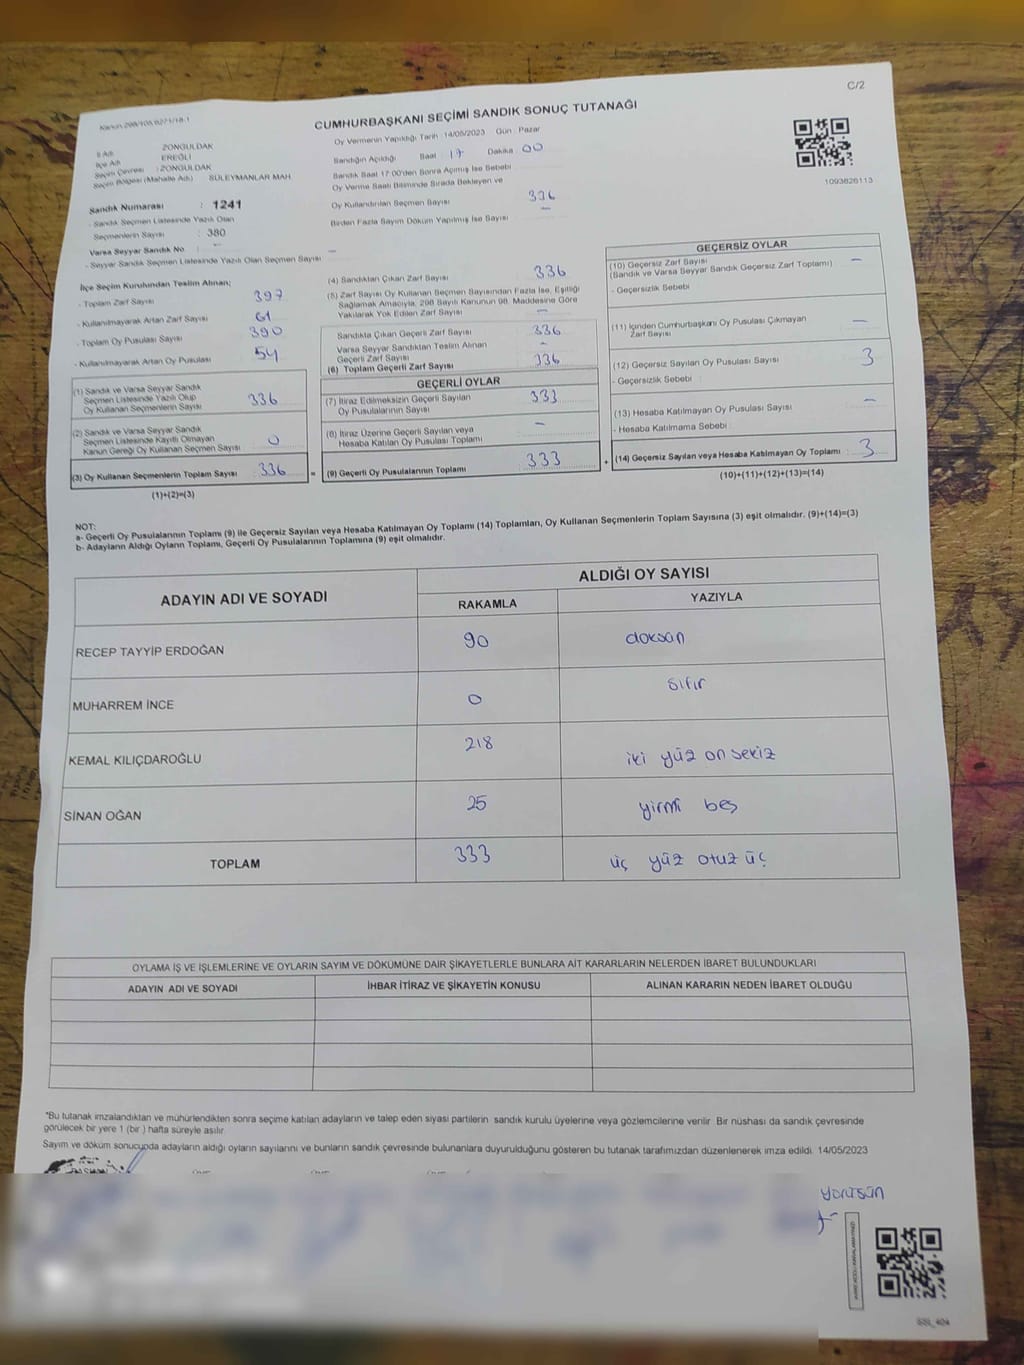 C/2
CUMHURBAŞKANI SEÇİMİ SANDIK SONUÇ TUTANAĞI
İl Adı ZONGULDAK
İlçe Adı EREĞLİ
Seçim Çevresi : ZONGULDAK
Seçim Bölgesi (Mahalle Adı) SÜLEYMANLAR MAH.
Oy Vermenin Yapıldığı Tarih 14/05/2023 Gün : Pazar
Sandığın Açıldığı Saat 17 Dakika 00
Sandık Saat 17.00'den Sonra Açılmış İse Sebebi
Oy Verme Saati Bitiminde Sırada Bekleyen ve
Oy Kullandırılan Seçmen Sayısı 336
Birden Fazla Sayım Döküm Yapılmış İse Sayısı –
1093826113
Sandık Numarası : 1241
- Sandık Seçmen Listesinde Yazılı Olan
Seçmenlerin Sayısı : 380
Varsa Seyyar Sandık No –
- Seyyar Sandık Seçmen Listesinde Yazılı Olan Seçmen Sayısı –
İlçe Seçim Kurulundan Teslim Alınan;
- Toplam Zarf Sayısı 397
- Kullanılmayarak Artan Zarf Sayısı 61
- Toplam Oy Pusulası Sayısı 390
- Kullanılmayarak Artan Oy Pusulası 54
(1) Sandık ve Varsa Seyyar Sandık
Seçmen Listesinde Yazılı Olup
Oy Kullanan Seçmenlerin Sayısı 336
(2) Sandık ve Varsa Seyyar Sandık
Seçmen Listesinde Kayıtlı Olmayan
Kanun Gereği Oy Kullanan Seçmen Sayısı 0
(3) Oy Kullanan Seçmenlerin Toplam Sayısı 336 =
(1)+(2)=(3)
(4) Sandıktan Çıkan Zarf Sayısı 336
(5) Zarf Sayısı Oy Kullanan Seçmen Sayısından Fazla İse, Eşitliği
Sağlamak Amacıyla, 298 Sayılı Kanunun 98. Maddesine Göre
Yakılarak Yok Edilen Zarf Sayısı –
Sandıkta Çıkan Geçerli Zarf Sayısı 336
Varsa Seyyar Sandıktan Teslim Alınan
Geçerli Zarf Sayısı –
(6) Toplam Geçerli Zarf Sayısı 336
GEÇERLİ OYLAR
(7) İtiraz Edilmeksizin Geçerli Sayılan
Oy Pusulalarının Sayısı 333
(8) İtiraz Üzerine Geçerli Sayılan veya
Hesaba Katılan Oy Pusulası Toplamı –
(9) Geçerli Oy Pusulalarının Toplamı 333 +
GEÇERSİZ OYLAR
(10) Geçersiz Zarf Sayısı –
(Sandık ve Varsa Seyyar Sandık Geçersiz Zarf Toplamı)
- Geçersizlik Sebebi
(11) İçinden Cumhurbaşkanı Oy Pusulası Çıkmayan
Zarf Sayısı –
(12) Geçersiz Sayılan Oy Pusulası Sayısı 3
- Geçersizlik Sebebi :
(13) Hesaba Katılmayan Oy Pusulası Sayısı –
- Hesaba Katılmama Sebebi
(14) Geçersiz Sayılan veya Hesaba Katılmayan Oy Toplamı : 3
(10)+(11)+(12)+(13)=(14)
NOT:
a- Geçerli Oy Pusulalarının Toplamı (9) ile Geçersiz Sayılan veya Hesaba Katılmayan Oy Toplamı (14) Toplamları, Oy Kullanan Seçmenlerin Toplam Sayısına (3) eşit olmalıdır. (9)+(14)=(3)
b- Adayların Aldığı Oyların Toplamı, Geçerli Oy Pusulalarının Toplamına (9) eşit olmalıdır.
ADAYIN ADI VE SOYADI ALDIĞI OY SAYISI
RAKAMLA YAZIYLA
RECEP TAYYİP ERDOĞAN 90 doksan
MUHARREM İNCE 0 sıfır
KEMAL KILIÇDAROĞLU 218 iki yüz on sekiz
SİNAN OĞAN 25 yirmi beş
TOPLAM 333 üç yüz otuz üç
OYLAMA İŞ VE İŞLEMLERİNE VE OYLARIN SAYIM VE DÖKÜMÜNE DAİR ŞİKAYETLERLE BUNLARA AİT KARARLARIN NELERDEN İBARET BULUNDUKLARI
ADAYIN ADI VE SOYADI İHBAR İTİRAZ VE ŞİKAYETİN KONUSU ALINAN KARARIN NEDEN İBARET OLDUĞU
"Bu tutanak imzalandıktan ve mühürlendikten sonra seçime katılan adayların ve talep eden siyasi partilerin sandık kurulu üyelerine veya gözlemcilerine verilir. Bir nüshası da sandık çevresinde
görülecek bir yere 1 (bir ) hafta süreyle asılır.
Sayım ve döküm sonucunda adayların aldığı oyların sayılarını ve bunların sandık çevresinde bulunanlara duyurulduğunu gösteren bu tutanak tarafımızdan düzenlenerek imza edildi. 14/05/2023
SSL_404